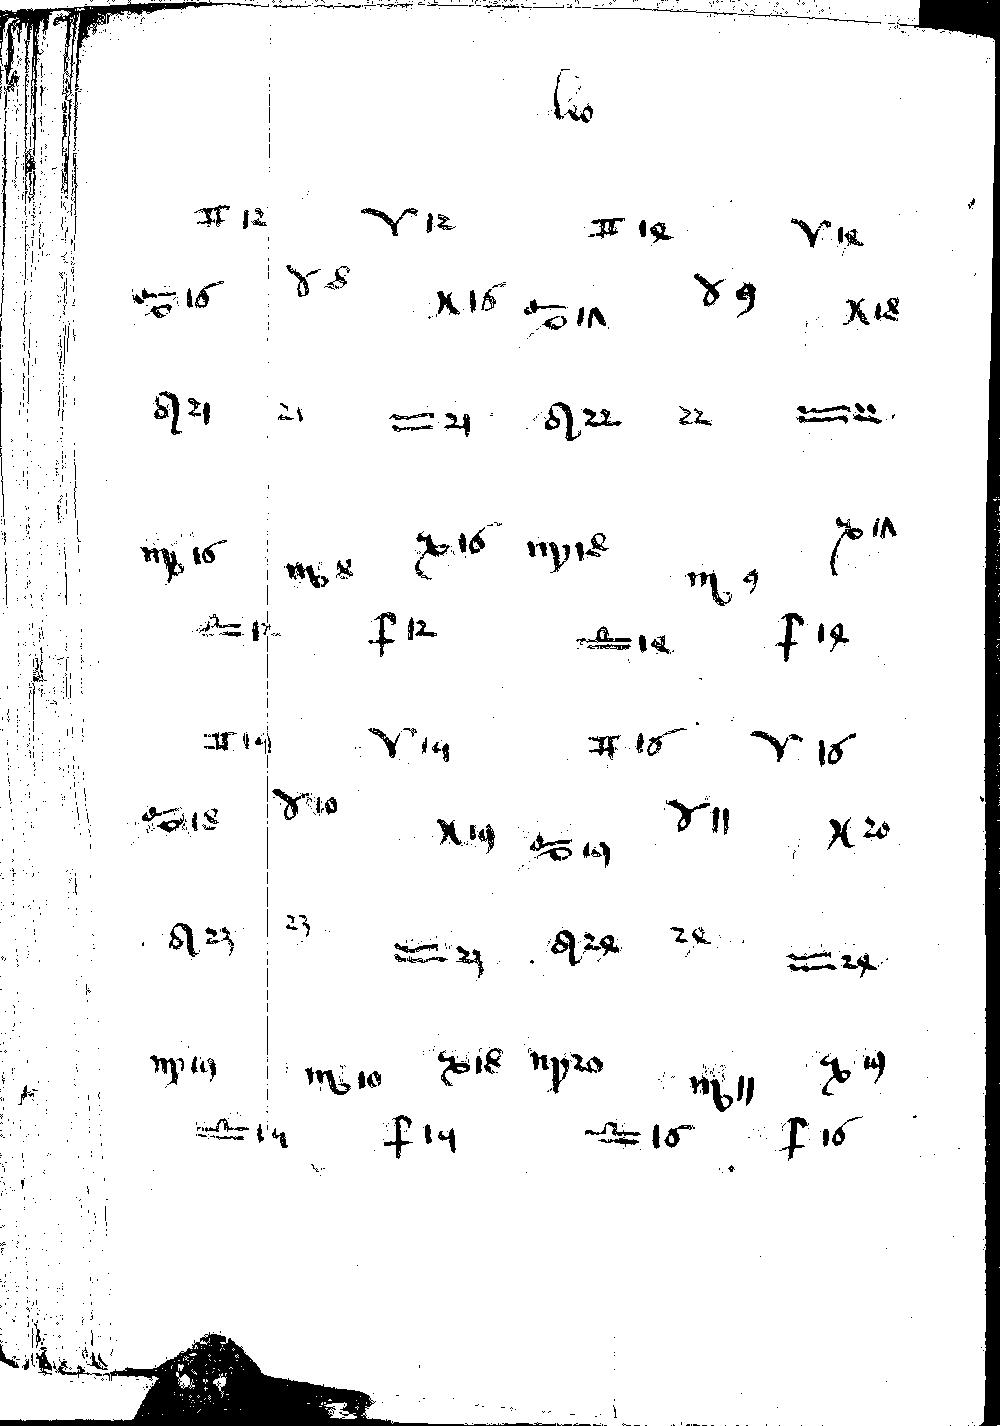 leo
♊ 12 ♈ 12 ♊ 14 ♈ 14
♋ 16 ♉ 8 ♓ 16 ♋ 17 ♉ 9 ♓ 18
♌ 21 21 ♒ 21 ♌ 22 22 ♒ 22
♍ 16 ♏ 8 ♑ 16 ♍ 18 ♏ 9 ♑ 17
♎ 12 ♐ 12 ♎ 14 ♐ 14
♊ 15 ♈ 15 ♊ 16 ♈ 16
♋ 18 ♉ 10 ♓ 19 ♋ 19 ♉ 11 ♓ 20
♌ 23 23 ♒ 23 ♌ 24 24 ♒ 24
♍ 19 ♏ 10 ♑ 18 ♍ 20 ♏ 11 ♑ 19
♎ 15 ♐ 15 ♎ 16 ♐ 16